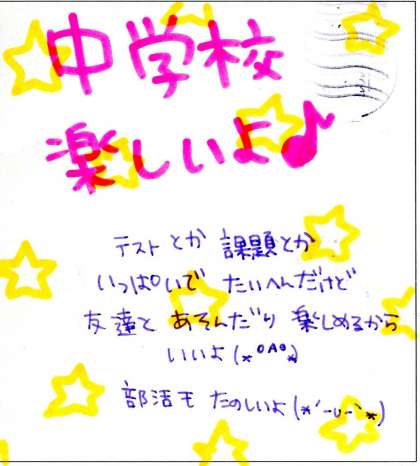 中学校
楽しいよ♪
テストとか 課題とか
いっぱいで たいへんだけど
友達と あそんだり 楽しめるから
いいよ(*°A°*)
部活モ たのしいよ(*´-∪-`*)